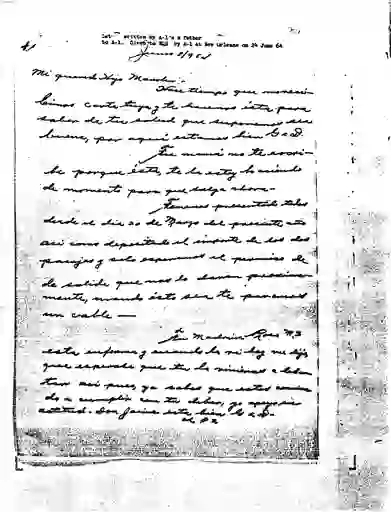 Let written by A-1's father
to A-1. Given to by A-1 at New Orleans on 24 June 64
Junio 5/964
Mi querido Hijo
Hace tiempo que no
cimos carta tuya y te hacemos ésta para
saber de tu salud que suponemos sea
buena, por aquí estamos bien G a D.
Tu mamá no te escri-
be porque ésta, te la estoy haciendo
de momento para que salga ahora.
Tenemos presentado todo
desde el día 20 de Marzo del presente año
así como depositado el importe de los dos
pasajes y solo esperamos el permiso de
salida que nos lo daran proxima-
mente, cuando ésto sea te ponemos
un cable —
Tu Madrina Rosa
esta enferma y cuando la vi hoy me dijo
que esperaba que tu la
ya sabes que estas
do a cumplir con tu deber,
actitud. Don Jaime esta bien G a D.
# 2